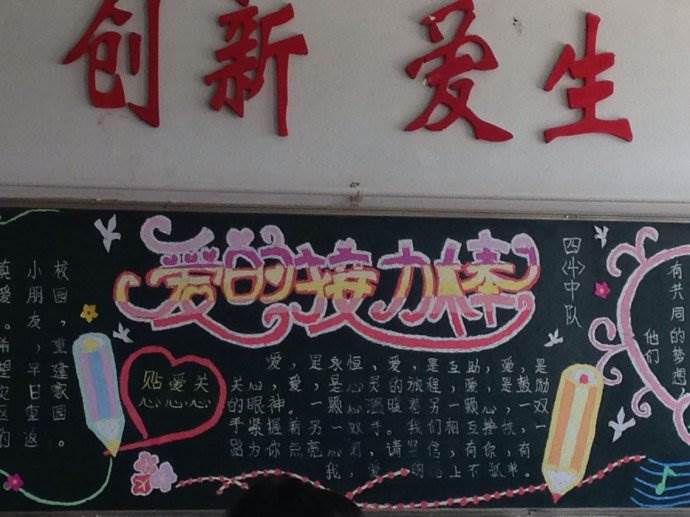 创新 爱生
真爱。希望灾区的
小朋友，早日重返
校园，重建家园。
爱的接力棒
中队
关心
爱心
贴心
爱，是永恒，爱，是互助，爱，是
关心，爱，是心灵的旅程，爱，是鼓励
的眼神。一颗心温暖着另一颗心，一双
手紧握着另一双手。我们相互搀扶，一
路为你点亮心灯，请坚信，有你，有
我，爱 上不孤单。
他们
有共同的梦想